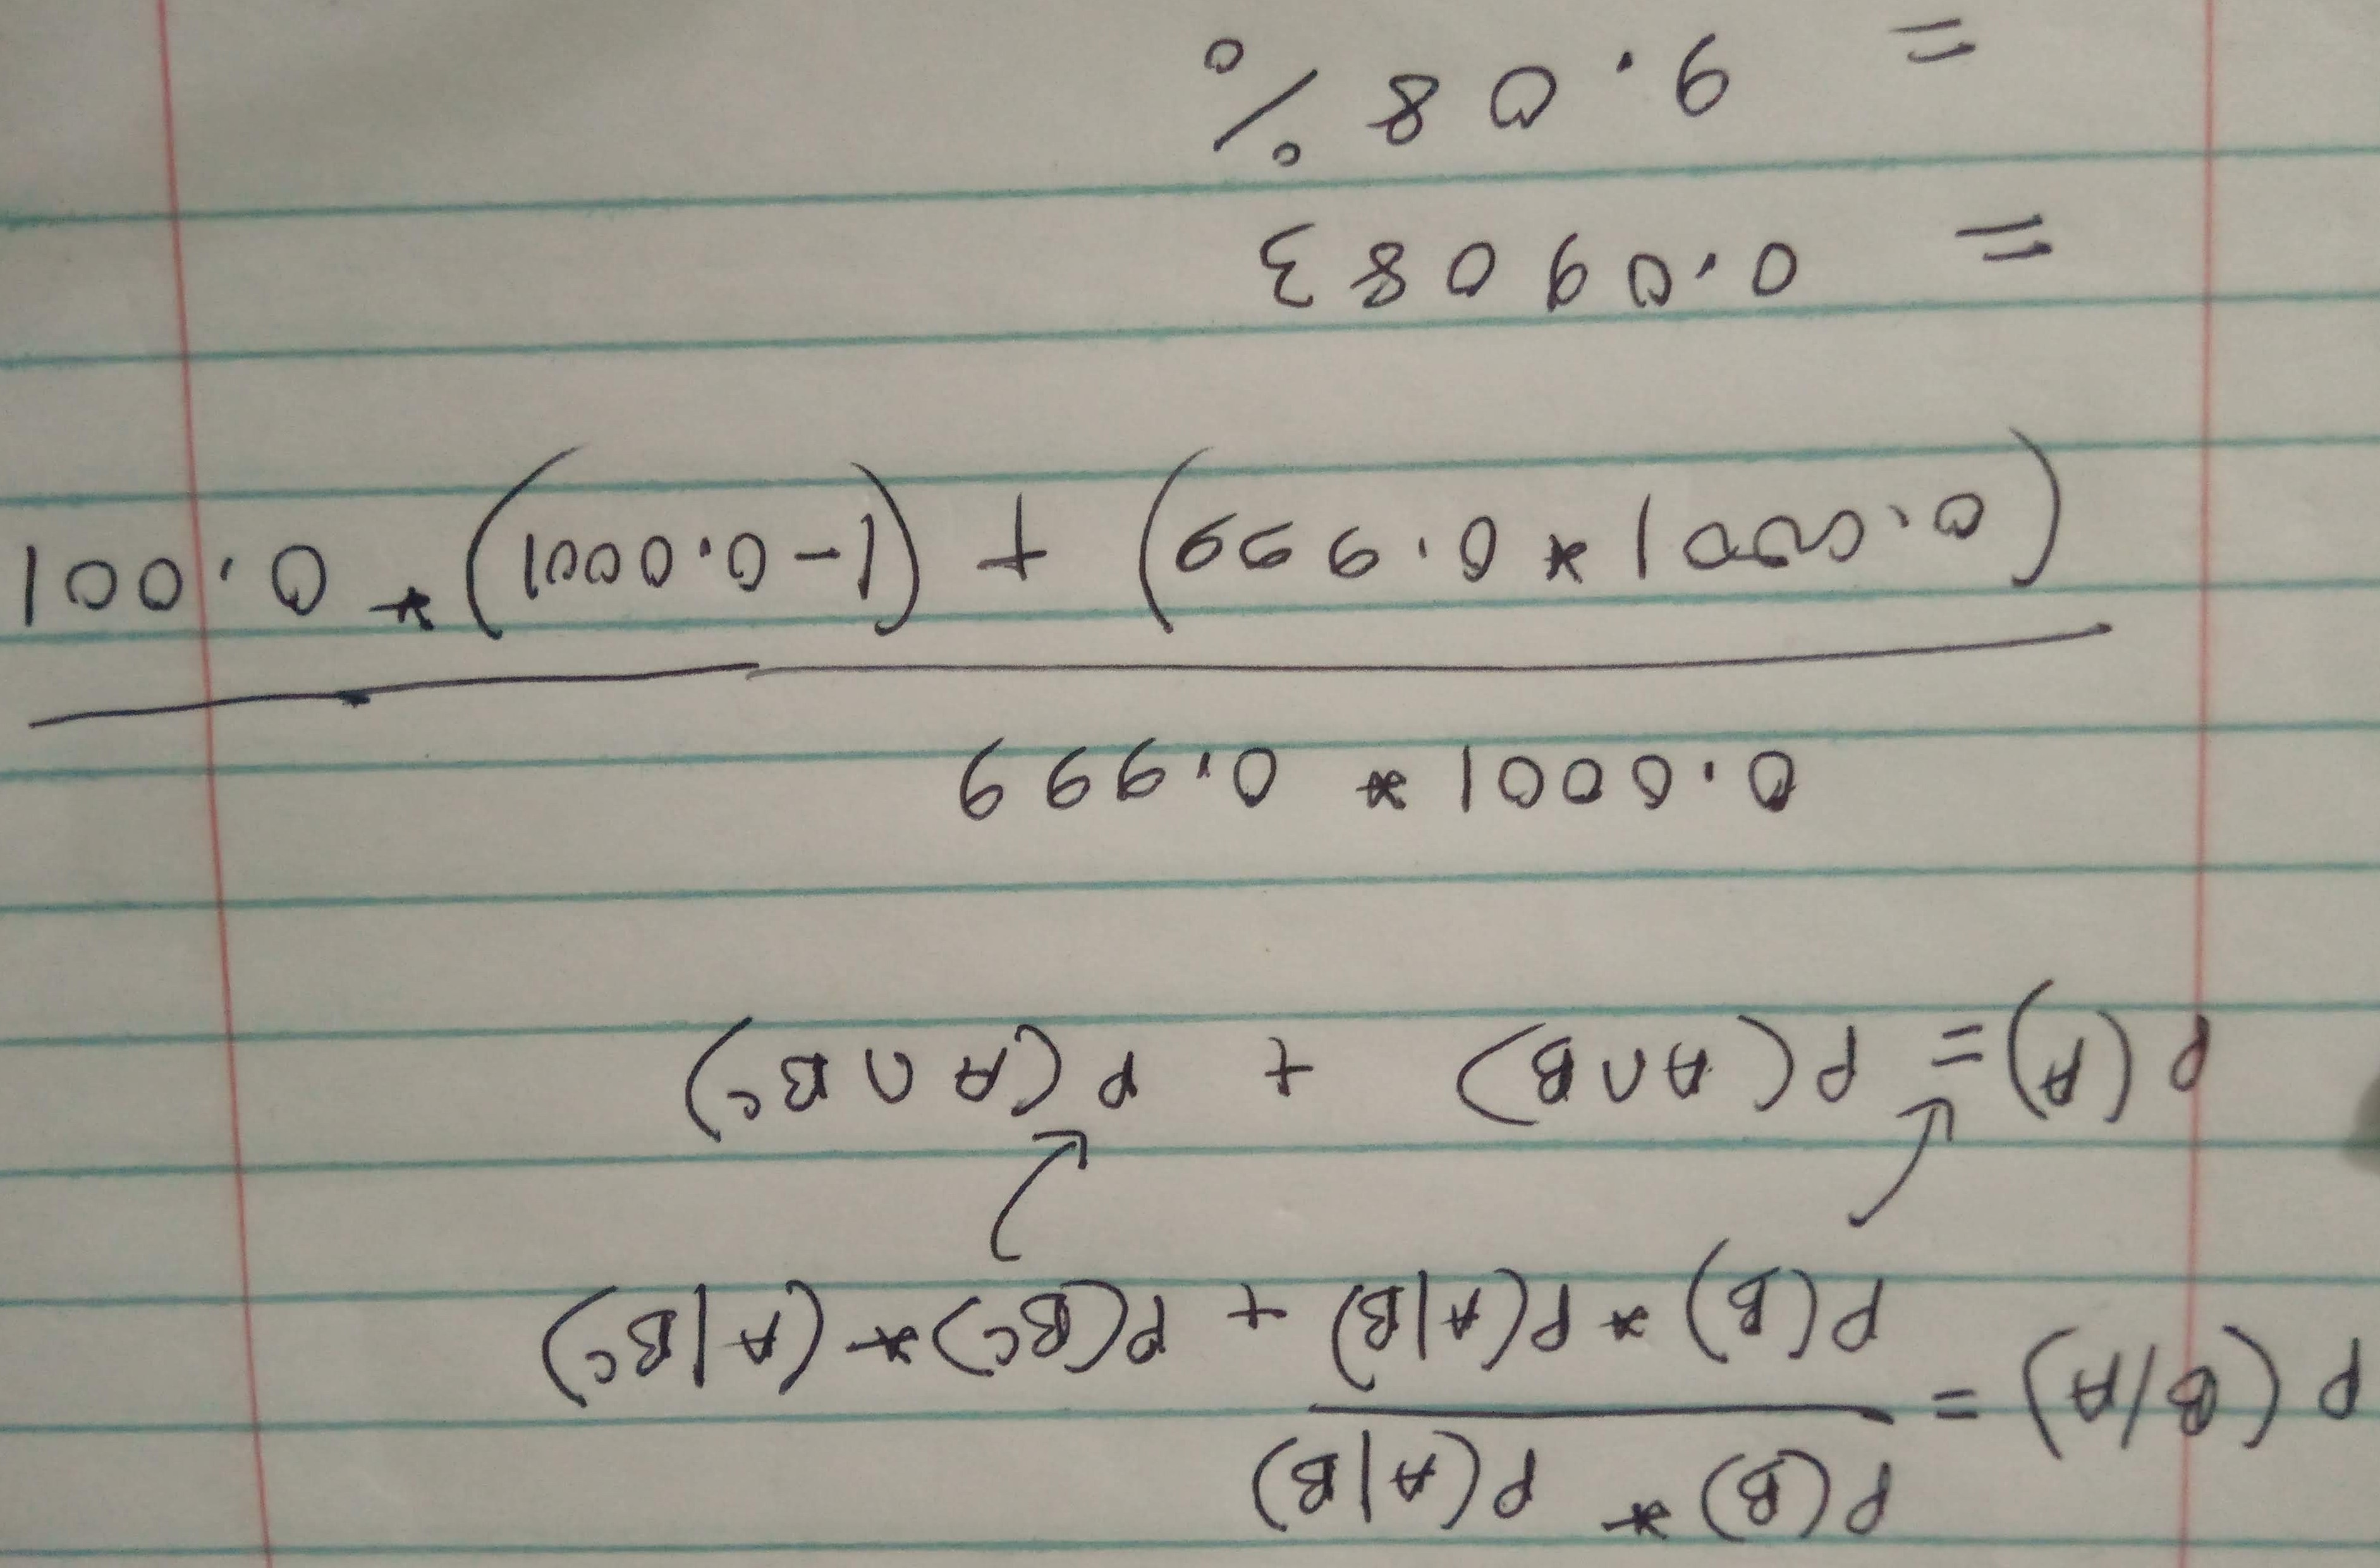 P(B) * P(A|B)
P(B/A) =
P(B) * P(A|B) + P(Bᶜ) * (A|Bᶜ)
P(A) = P(A∩B) + P(A∩Bᶜ)
0.0001 * 0.999
(0.0001 * 0.999) + (1-0.0001) * 0.001
= 0.09083
= 9.08%